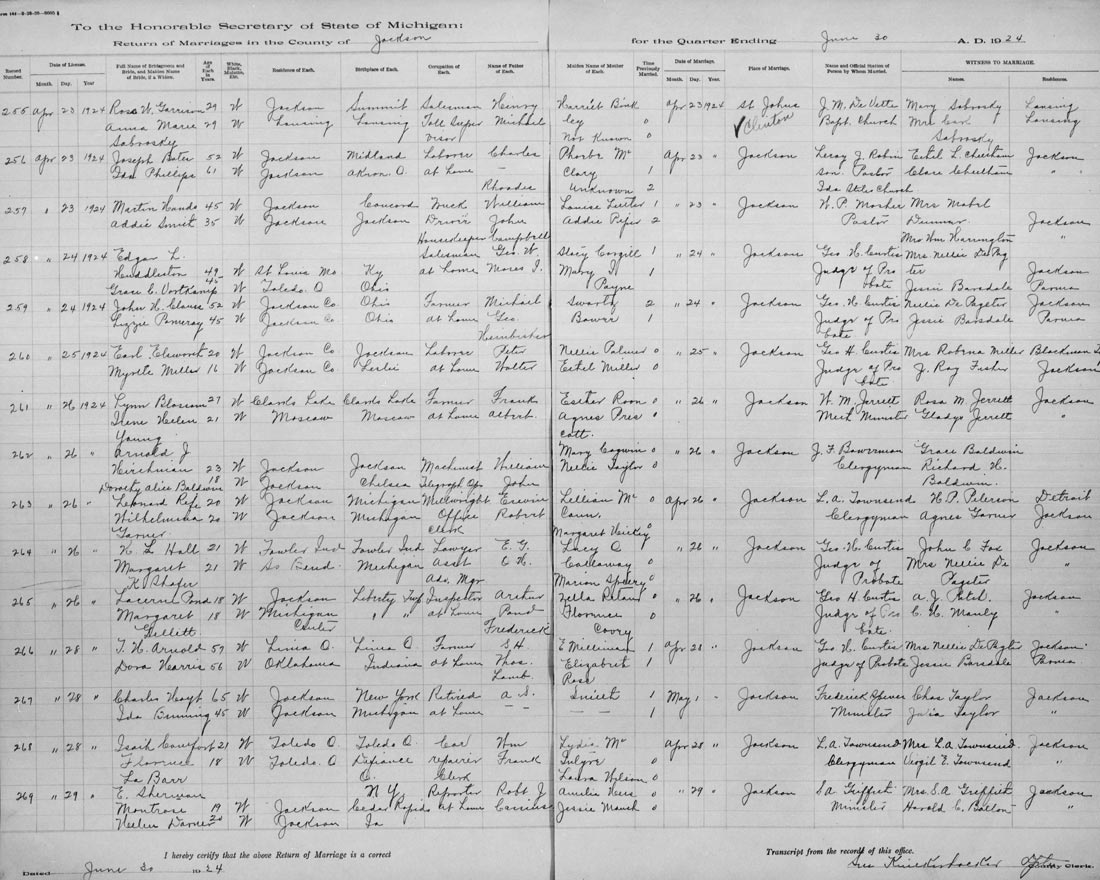 To the Honorable Secretary of State of Michigan:
Return of Marriages in the County of Jackson for the Quarter Ending June 30 A. D. 1924
Record Number. Date of License. Month. Day. Year Full Name of Bridegroom and Bride, and Maiden Name of Bride, if a Widow. Age of Each in Years White, Black, Mulatto, Etc. Residence of Each. Birthplace of Each. Occupation of Each. Name of Father of Each. Maiden Name of Mother of Each. Time Previously Married. Date of Marriage. Month. Day. Year. Place of Marriage. Name and Official Station of Person by Whom Married. WITNESS TO MARRIAGE. Names. Residences.
255 Apr 23 1924 Ross W. Garrison 29 W Jackson Summit Salesman Henry Harriet Bink Apr 23 1924 St Johns J. M. De Vette Mary Sabrosky Lansing
Anna Marie 29 W Lansing Lansing Toll Super Michael ley 0 Clinton Bapt. Church Mrs Carl Lansing
Sabrosky visor Not Known 0 Sabrosky
256 Apr 23 1924 Joseph Bater 52 W Jackson Midland Laborer Charles Phoebe Mc Apr 23 " Jackson Leroy J. Robin Ethel L. Cheetham Jackson
Ida Phillips 61 W Jackson Akron O. at home — Clary 1 son Pastor Clare Cheetham " "
Rhoades Unknown 2 Ida Stiles Church
257 " 23 1924 Martin Hands 45 W Jackson Concord Truck William Louise Luther 1 " 23 " Jackson W. P. Mosher Mrs Mabel
Addie Smith 35 W Jackson Jackson Driver John Addie Piper 2 Pastor Dunmar Jackson
Housekeeper Campbell Mrs Wm Harrington "
258 " 24 1924 Edgar L. Salesman Geo. W. Stacy Corgill 1 " 24 " Jackson Geo. H. Curtis Mrs Nellie De Pug
Huddleston 49 W St Louis Mo Ky at home Moses I. Mary I. 1 Judge of Pro ter Jackson
Grace C. W Toledo O Ohio Payne bate Jessie Barsdale Parma
259 " 24 1924 John H. Clause 52 W Jackson Co Ohio Farmer Michael Swartz 2 " 24 " Jackson Geo. H. Curtis Nellie De Puyster Jackson
Lizzie Pomeray 45 W Jackson Co Ohio at home Geo. Bower 1 Judge of Pro Jessie Barsdale Parma
bate
260 " 25 1924 Earl Elsworth 20 W Jackson Co Jackson Laborer Peter Nellie Palmer 0 " 25 " Jackson Geo H. Curtis Mrs Robena Miller Blackman
Myrtle Miller 16 W Jackson Co Leslie at home Walter Ethel Miller 0 Judge of Pro J. Ray Fisher Jackson
bate
261 " 26 1924 Lynn Blossom 27 W Clarks Lake Clarks Lake Farmer Frank Esther Roon 0 " 26 " Jackson W. M. Jerrett Rosa M Jerrett Jackson
Irene Helen 21 W Moscow Moscow at home Albert. Agnes Pres 0 Meth Minister Gladys Jerrett "
Young cott.
262 " 26 " Arnold J Mary Cogwin 0 " 26 " Jackson J. F. Bowerman Grace Baldwin
Hirchman 23 W Jackson Jackson Machinist William Nellie Taylor 0 Clergyman Richard H.
Dorothy Alice Baldwin 18 W Jackson Chelsea Telegraph Op. John Baldwin.
263 " 26 " Leonard Rife 20 W Jackson Michigan Millwright Erwin Lillian Mc 0 Apr 26 " Jackson L. A. Townsend H. P. Peterson Detroit
Wilhelmina 20 W Jackson Michigan Office Robert Cann, Clergyman Agnes Garner Jackson
Garner Clerk Margaret 0
264 " 26 " H L Hall 21 W Fowler Ind Fowler Ind Lawyer E. G. Lucy O 0 " 26 " Jackson Geo. H. Curtis John C Fox Jackson
Margaret 21 W So Bend. Michigan Asst O H. Callaway Judge of Mrs Nellie De "
K Shafer Adv. Mgr Marion Spurry 0 Probate Pugster
265 " 26 " Laverne Pond 18 W Jackson Liberty Twp Inspector Arthur Zella Roland 0 " 26 " Jackson Geo H. Curtis A. J. Patch. Jackson
Margaret 18 W Michigan " " at home Pond Florence 0 Judge of Pro C. H. Manly "
Gillett Center Frederick Covry bate.
266 " 28 " T. H. Arnold 59 W Lima O. Lima O. Farmer S. H. E Milliman 1 Apr 28 " Jackson Geo. H. Curtis Mrs Nellie De Pugster Jackson
Dora Harris 56 W Oklahoma Indiana at home Thos. Elizabeth 1 Judge of Probate Jessie Barsdale Parma
Lamb. Rose
267 " 28 " Charles Hoyt 65 W Jackson New York Retired A. S. Smith 1 May 1 Jackson Frederick Spener Chas Taylor Jackson
Ida Binning 45 W Jackson Michigan at home — — — — 1 Minister Julia Taylor "
268 " 28 " Isaih Comfort 21 W Toledo O. Toledo O. Car Wm Lydia Mc Apr 28 " Jackson L. A. Townsend Mrs. L. A. Townsend Jackson
Florence 18 W Toledo O. Defiance repairer Frank Intyre 0 Clergyman Virgil E. Townsend "
La Barr O. Clerk Laura Wilson 0
269 " 29 " E. Sherman N Y Reporter Robt J Amelia Hess 0 " 29 " Jackson S. A. Griffith Mrs. S. A. Griffith Jackson
Montrose 19 W Jackson Cedar Rapids at home Cassius Jessie Mauch 0 Minister Harold C. Ballon "
Helen Darner 20 W Jackson Ia
I hereby certify that the above Return of Marriage is a correct Transcript from the records of this office.
Dated June 30 1924 Geo Knickerbocker County Clerk.